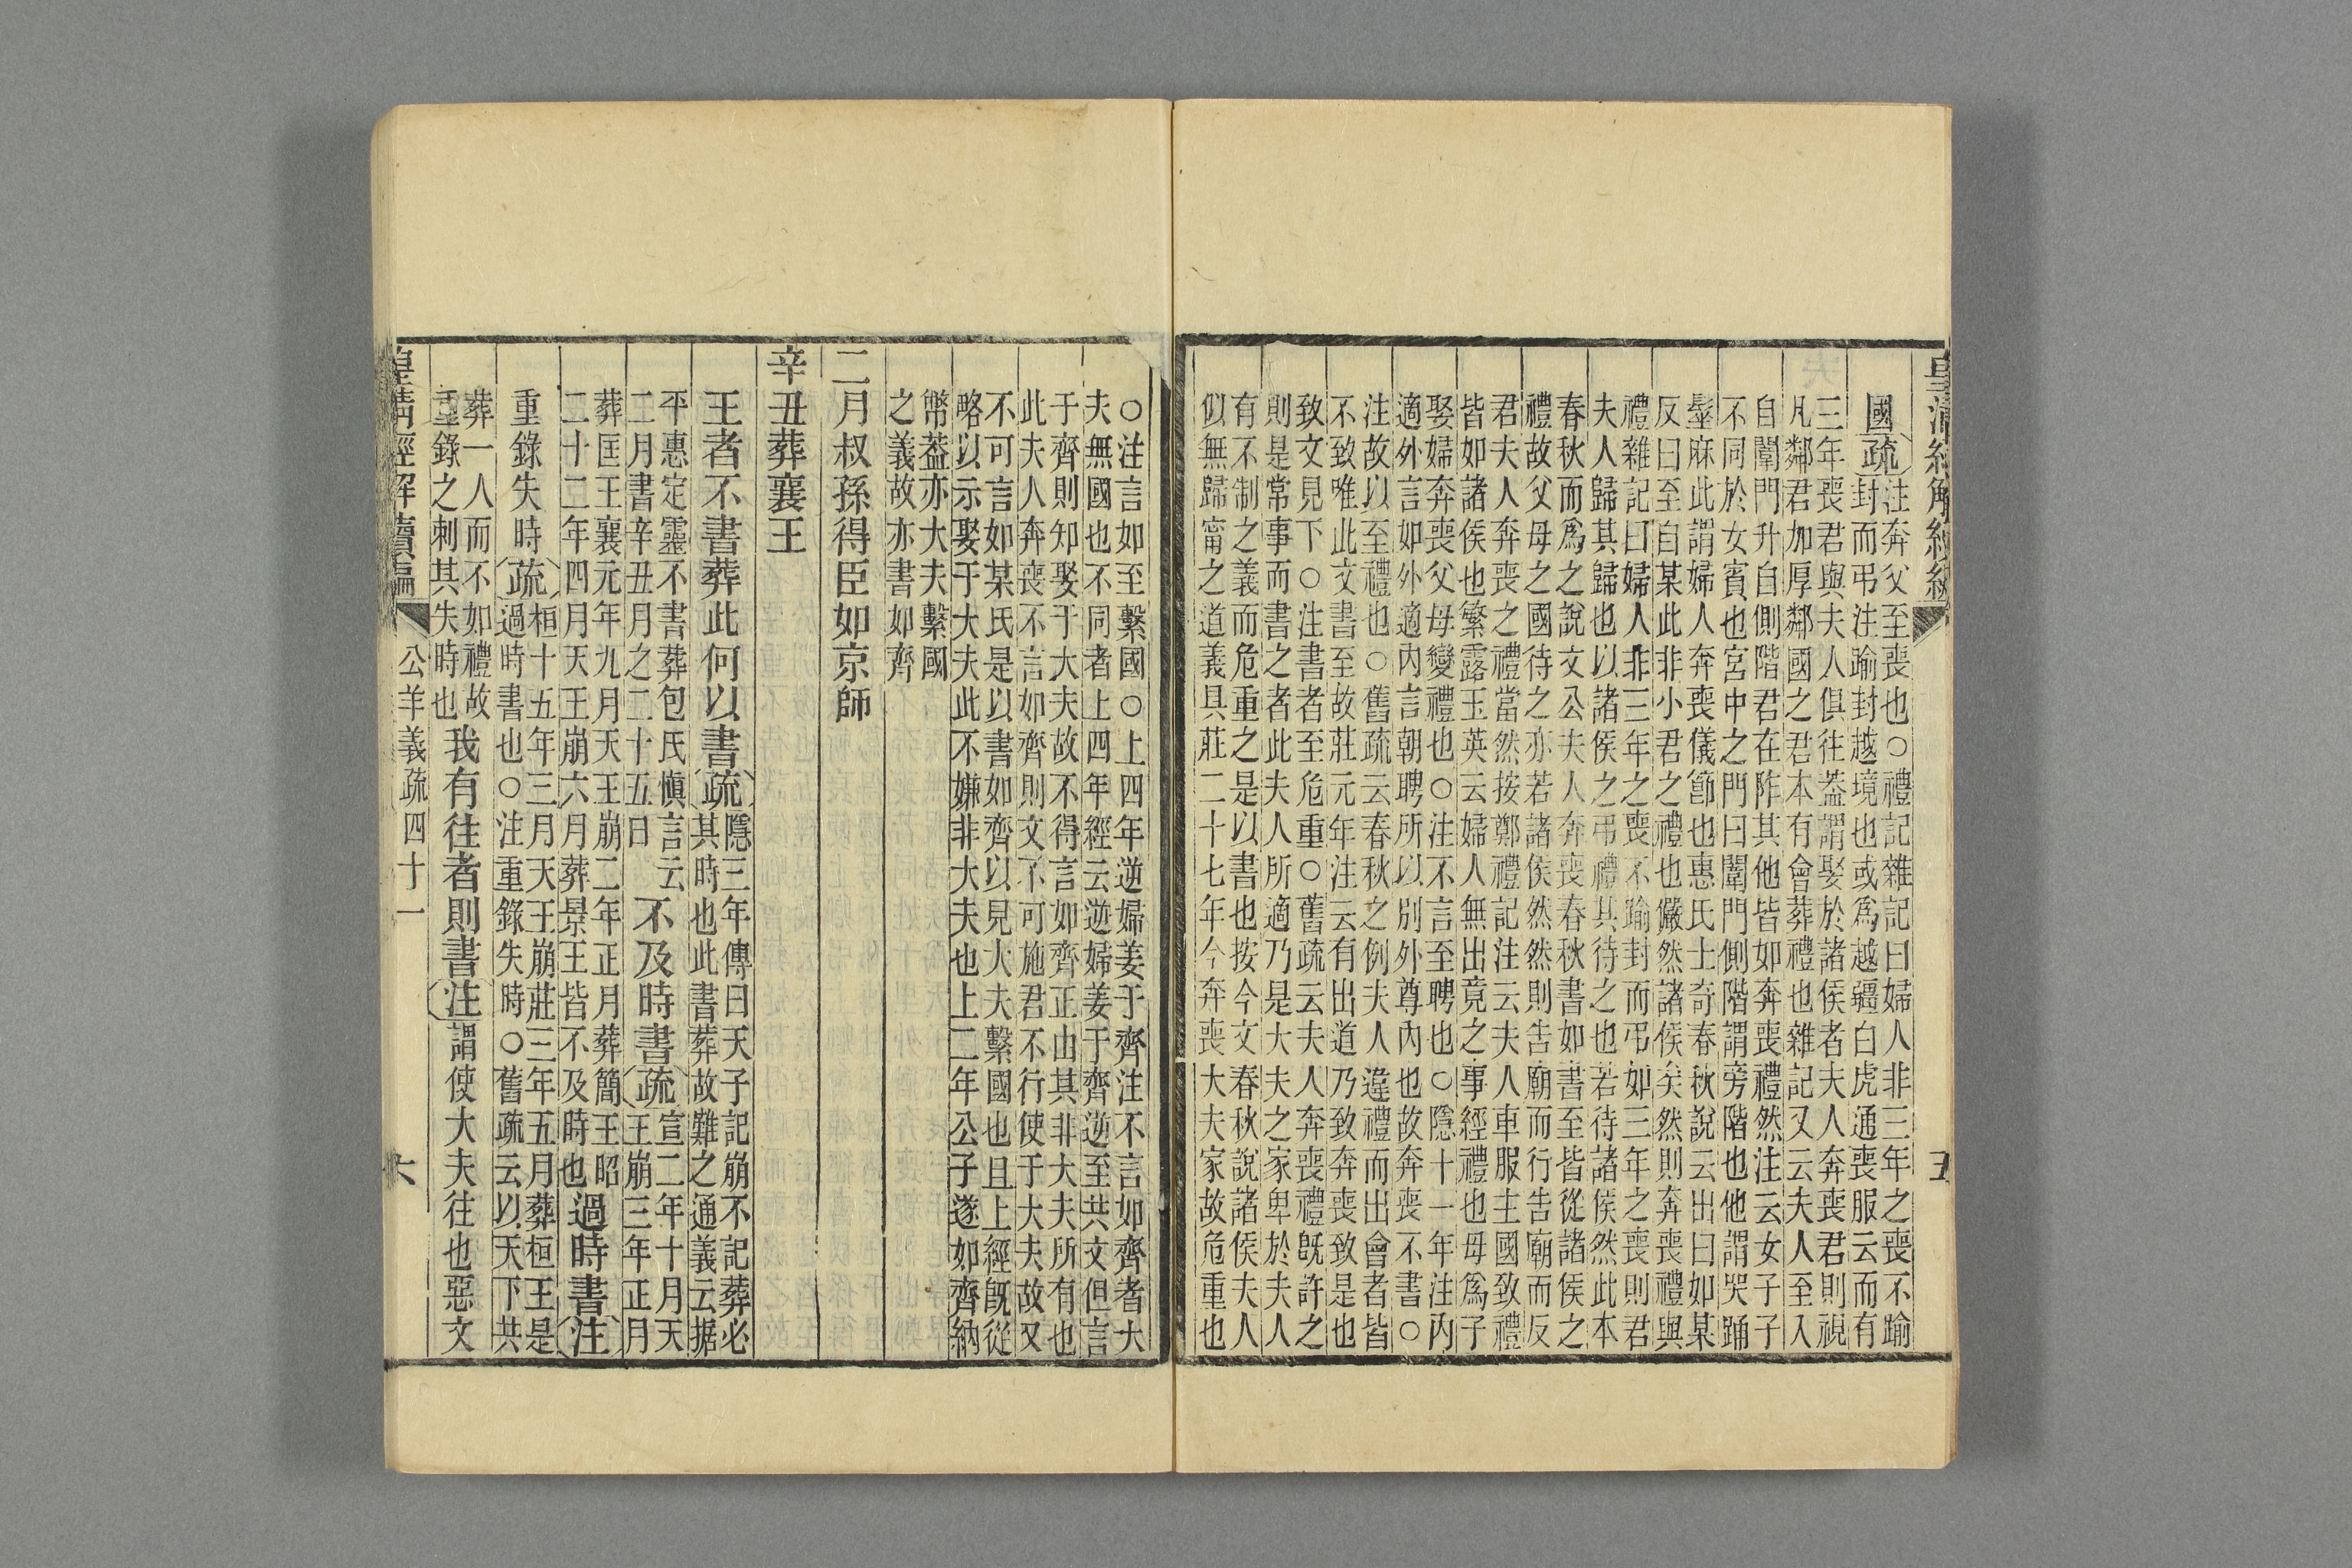 皇清經解續
五
國疏注奔父至喪也○禮記雜記曰婦人非三年之喪不踰
封而弔注踰封越境也或爲越疆白虎通喪服云而有
三年喪君與夫人俱往蓋謂娶於諸侯者夫人奔喪君則視
凡鄰君加厚鄰國之君本有會葬禮也雜記又云夫人至入
自闈門升自側階君在阼其他皆如奔喪禮然注云女子子
不同於女賓也宮中之門曰闈門側階謂旁階也他謂哭踊
髽麻此謂婦人奔喪儀節也惠氏士奇春秋說云出曰如某
反曰至自某此非小君之禮也儼然諸侯矣然則奔喪禮與
禮雜記曰婦人非三年之喪不踰封而弔如三年之喪則君
夫人歸其歸也以諸侯之弔禮其待之也若待諸侯然此本
春秋而爲之說文公夫人奔喪春秋書如書至皆從諸侯之
禮故父母之國待之亦若諸侯然然則告廟而行告廟而反
君夫人奔喪之禮當然按鄭禮記注云夫人車服主國致禮
皆如諸侯也繁露玉英云婦人無出竟之事經禮也母爲子
娶婦奔喪父母變禮也○注不言至聘也○隱十一年注內
適外言如外適內言朝聘所以別外尊內也故奔喪不書○
注故以至禮也○舊疏云春秋之例夫人違禮而出會者皆
不致唯此文書至故莊元年注云有出道乃致奔喪致是也
致文見下○注書者至危重○舊疏云夫人奔喪禮既許之
則是常事而書之者此夫人所適乃是大夫之家卑於夫人
有不制之義而危重之是以書也按今文春秋說諸侯夫人
似無歸甯之道義具莊二十七年今奔喪大夫家故危重也
○注言如至繫國○上四年逆婦姜于齊注不言如齊者大
夫無國也不同者上四年經云逆婦姜于齊逆至共文但言
于齊則知娶于大夫故不得言如齊正由其非大夫所有也
此夫人奔喪不言如齊則文不可施君不行使于大夫故又
不可言如某氏是以書如齊以見大夫繫國也且上經既從
略以示娶于大夫此不嫌非大夫也上二年公子遂如齊納
幣蓋亦大夫繫國
之義故亦書如齊
二月叔孫得臣如京師
辛丑葬襄王
王者不書葬此何以書疏隱三年傳曰天子記崩不記葬必
其時也此書葬故難之通義云據
平惠定靈不書葬包氏愼言云
二月書辛丑月之二十五日
不及時書疏宣二年十月天
王崩三年正月
葬匡王襄元年九月天王崩二年正月葬簡王昭
二十二年四月天王崩六月葬景王皆不及時也
過時書注
重錄失時疏桓十五年三月天王崩莊三年五月葬桓王是
過時書也○注重錄失時○舊疏云以天下共
葬一人而不如禮故
重錄之刺其失時也
我有往者則書注謂使大夫往也惡文
皇清經解續編
公羊義疏四十一
六